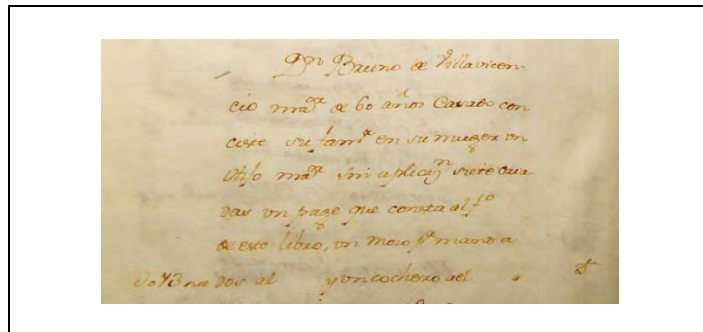 Dn Bruno de Villavicen-
cio mar de 60 años Casado con
ciste su famª en su muger un
Hijo mor sin aplicazn siete cria
das un page que consta al fº
de este libro, un mozo pª manda
dos al y un cochero del